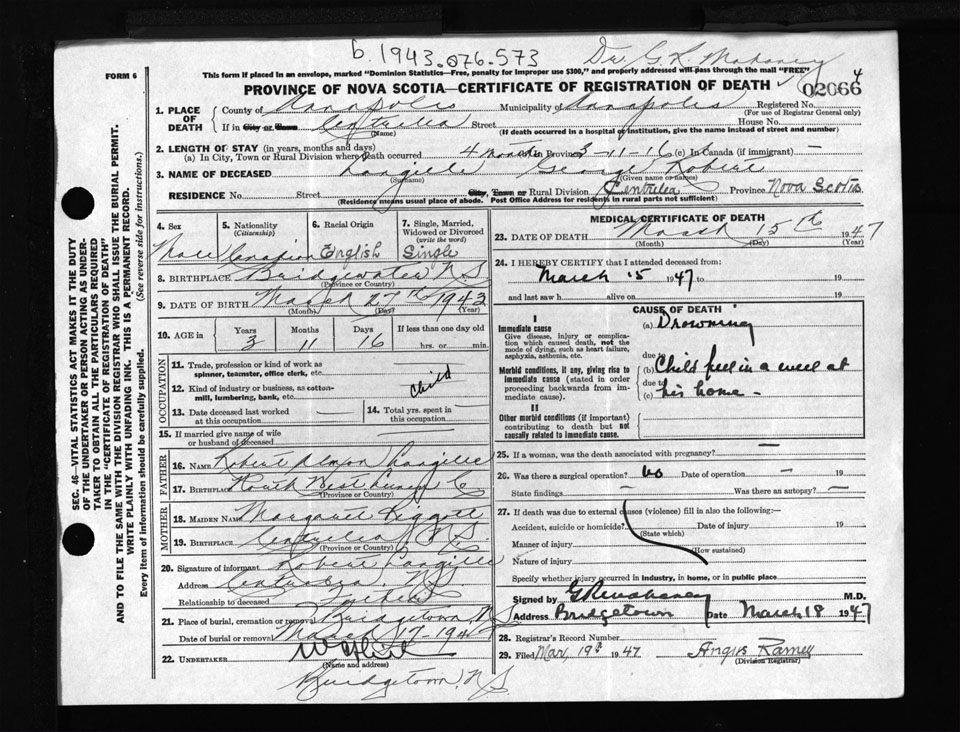 b. 1943.076.573
Dr. G. R. Mahaney
FORM 6
This form if placed in an envelope, marked "Dominion Statistics—Free, penalty for improper use $300," and properly addressed will pass through the mail "FREE"
PROVINCE OF NOVA SCOTIA—CERTIFICATE OF REGISTRATION OF DEATH
02066 4
1. PLACE OF DEATH County of Annapolis Municipality of Annapolis Registered No.
(For use of Registrar General only)
If in City or Town Centrelea Street House No.
(Name) (If death occurred in a hospital or institution, give the name instead of street and number)
2. LENGTH OF STAY (in years, months and days)
(a) In City, Town or Rural Division where death occurred 4 Months in Province 3-11-16 (c) In Canada (if immigrant) —
3. NAME OF DECEASED Langille George Robert
(Surname) (Given name or names)
RESIDENCE No. Street City, Town or Rural Division Centrelea Province Nova Scotia
(Residence means usual place of abode. Post Office Address for residents in rural parts not sufficient)
4. Sex 5. Nationality (Citizenship) 6. Racial Origin 7. Single, Married, Widowed or Divorced (write the word)
Male Canadian English Single
8. BIRTHPLACE Bridgewater N S
(Province or Country)
9. DATE OF BIRTH March 27th 1943
(Month) (Day) (Year)
10. AGE in Years Months Days If less than one day old
3 11 16 hrs. or min.
OCCUPATION
11. Trade, profession or kind of work as spinner, teamster, office clerk, etc.
12. Kind of industry or business, as cotton-mill, lumbering, bank, etc. Child
13. Date deceased last worked at this occupation 14. Total yrs. spent in this occupation
15. If married give name of wife or husband of deceased
FATHER
16. NAME Robert Langille
17. BIRTHPLACE
(Province or Country)
MOTHER
18. MAIDEN NAME Margaret Liggett
19. BIRTHPLACE Centrelea N.S.
(Province or Country)
20. Signature of informant Robert Langille
Address Centrelea, N.S.
Relationship to deceased Father
21. Place of burial, cremation or removal Bridgetown, N.S.
Date of burial or removal March 17-1947
22. UNDERTAKER
(Name and address)
Bridgetown, N.S.
MEDICAL CERTIFICATE OF DEATH
23. DATE OF DEATH March 15th 1947
(Month) (Day) (Year)
24. I HEREBY CERTIFY that I attended deceased from:
March 15 1947 to 19
and last saw h alive on 19
CAUSE OF DEATH
I
Immediate cause (a) Drowning
Give disease, injury or complication which caused death, not the mode of dying, such as heart failure, asphyxia, asthenia, etc.
due to
Morbid conditions, if any, giving rise to immediate cause (stated in order proceeding backwards from immediate cause). (b) Child fell in a well at
due to
(c) his home —
II
Other morbid conditions (if important) contributing to death but not causally related to immediate cause.
25. If a woman, was the death associated with pregnancy? —
26. Was there a surgical operation? No Date of operation — 19
State findings — Was there an autopsy? —
27. If death was due to external causes (violence) fill in also the following:—
Accident, suicide or homicide? Date of injury 19
(State which)
Manner of injury
(How sustained)
Nature of injury
Specify whether injury occurred in industry, in home, or in public place
Signed by G R Mahaney M.D.
Address Bridgetown Date March 18 1947
28. Registrar's Record Number
29. Filed Mar, 19th 1947 Angus Ramey
(Division Registrar)
SEC. 46—VITAL STATISTICS ACT MAKES IT THE DUTY
OF THE UNDERTAKER OR PERSON ACTING AS UNDER-
TAKER TO OBTAIN ALL THE PARTICULARS REQUIRED
IN THE "CERTIFICATE OF REGISTRATION OF DEATH"
AND TO FILE THE SAME WITH THE DIVISION REGISTRAR WHO SHALL ISSUE THE BURIAL PERMIT.
WRITE PLAINLY WITH UNFADING INK. THIS IS A PERMANENT RECORD.
Every item of information should be carefully supplied. (See reverse side for instructions.)